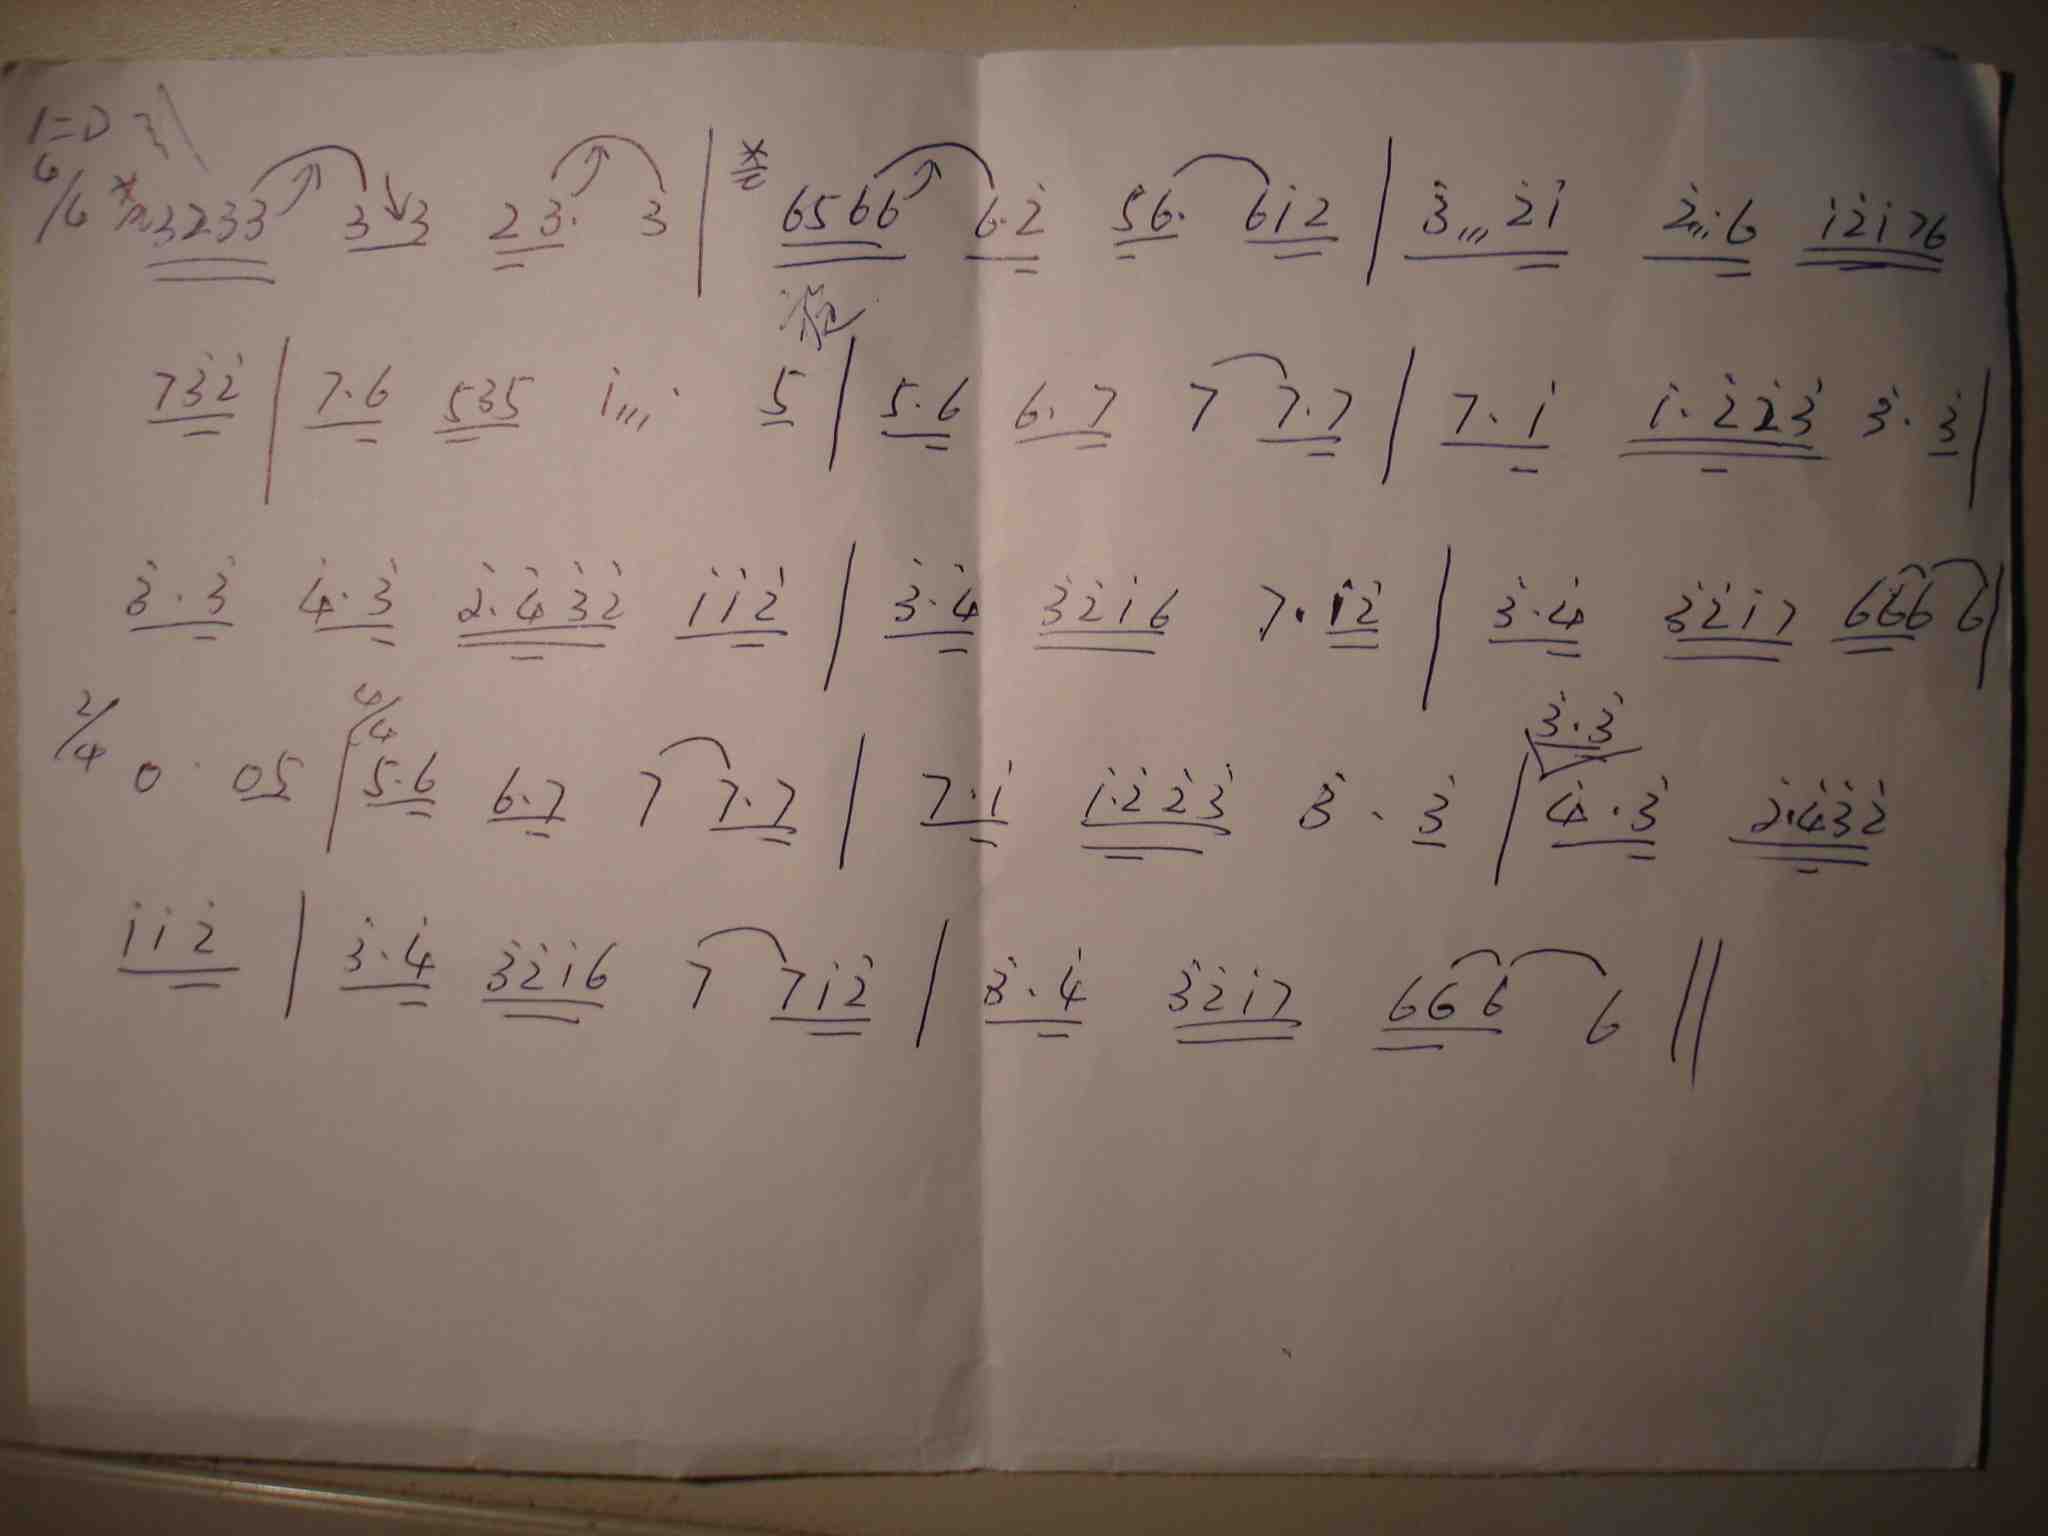 1=D
4/4 3233 3 3 23. 3 | 6566 6.2̇ 56. 61̇2̇ | 3̇,,, 2̇1̇ 2̇,,.6 1̇2̇1̇76
73̇2̇ | 7.6 535 1̇,,,. 5 | 5.6 6.7 7 7.7 | 7.1̇ 1̇.2̇2̇3̇ 3̇.3̇ |
3̇.3̇ 4̇.3̇ 2̇.4̇3̇2̇ 1̇1̇2̇ | 3̇.4̇ 3̇2̇1̇6 7.1̇2̇ | 3̇.4̇ 3̇2̇1̇7 666 6 |
3̇.3̇
2/4 0 05 | 4/4 5.6 6.7 7 7.7 | 7.1̇ 1̇.2̇2̇3̇ 3̇.3̇ | 4̇.3̇ 2̇.4̇3̇2̇
1̇1̇2̇ | 3̇.4̇ 3̇2̇1̇6 7 71̇2̇ | 3̇.4̇ 3̇2̇1̇7 666 6 ||